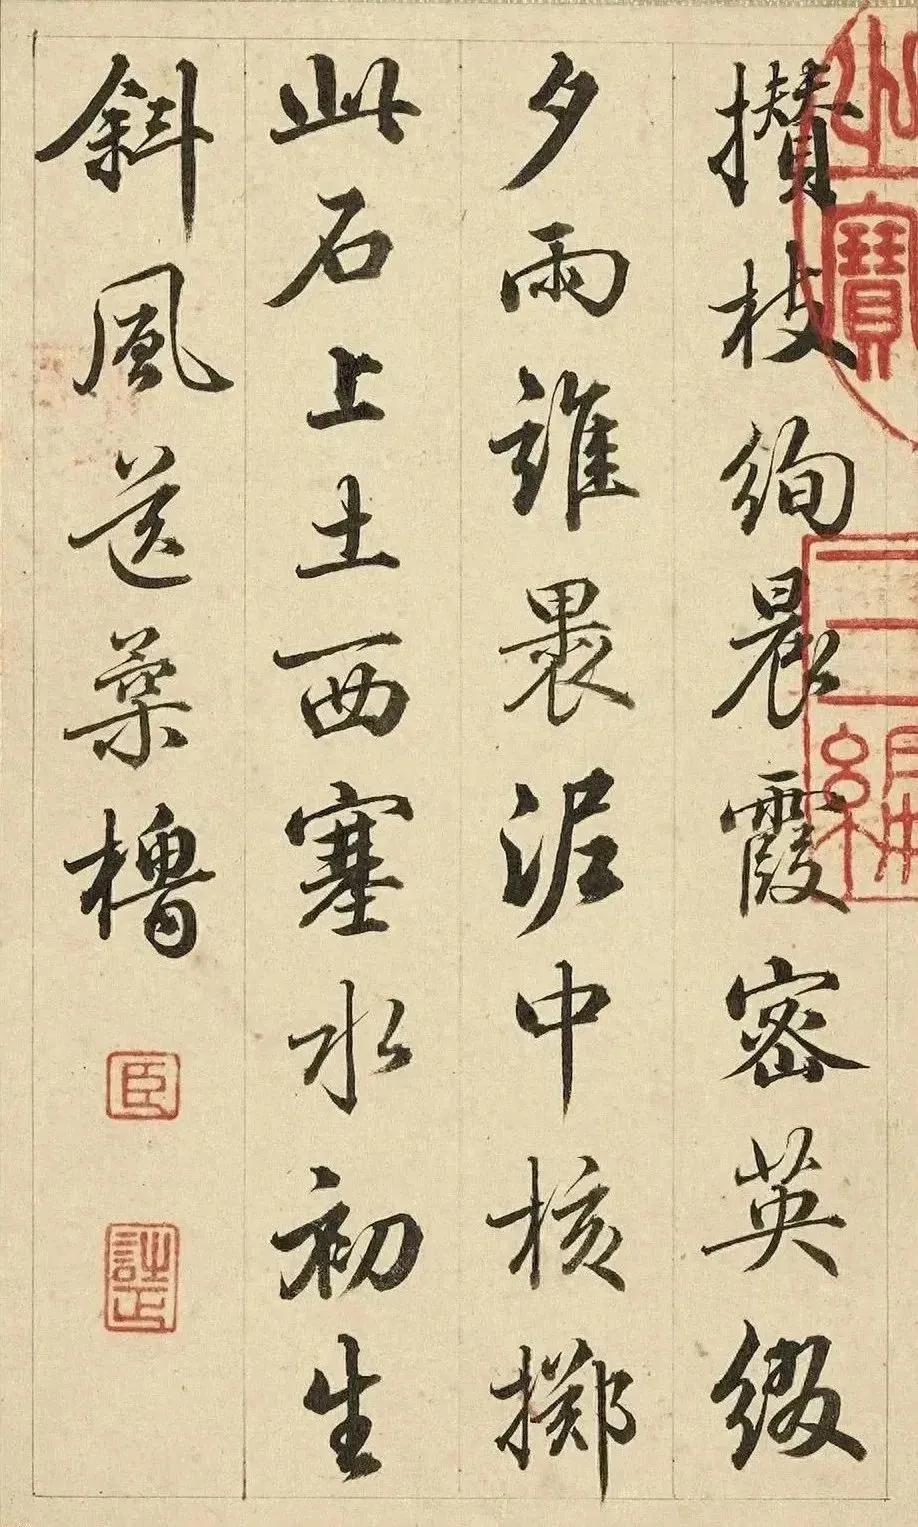 攢枝絢晨霞密英綴
夕雨誰裹泥中核擲
此石上土西塞水初生
斜風送櫓
臣
詩正
之寶
三編